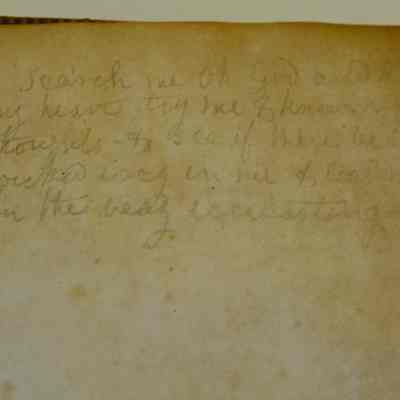 Search me Oh God and k
my heart try me & know m
thoughts - & see if there be a
wicked way in me & lead m
in the way everlasting -